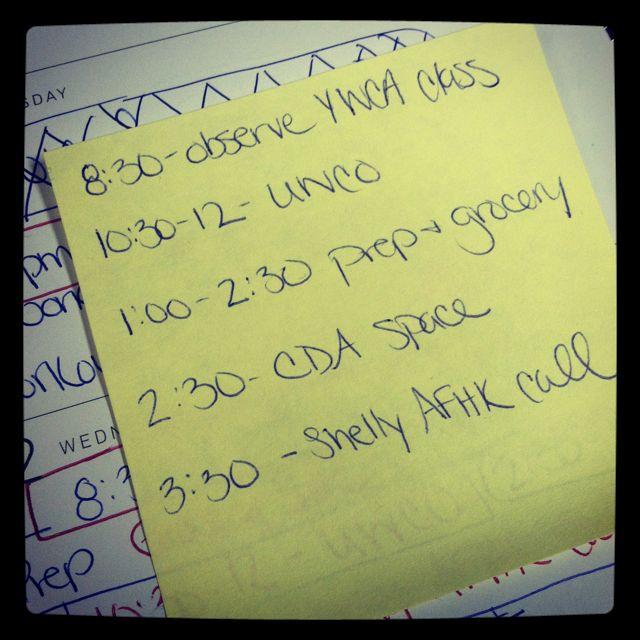 SDAY
8:30-observe YWCA class
10:30-12- UNCO
1:00-2:30 prep + grocery
2:30- CDA space
3:30 - Shelly AFHK call
pm
WEDN
8:3
rep